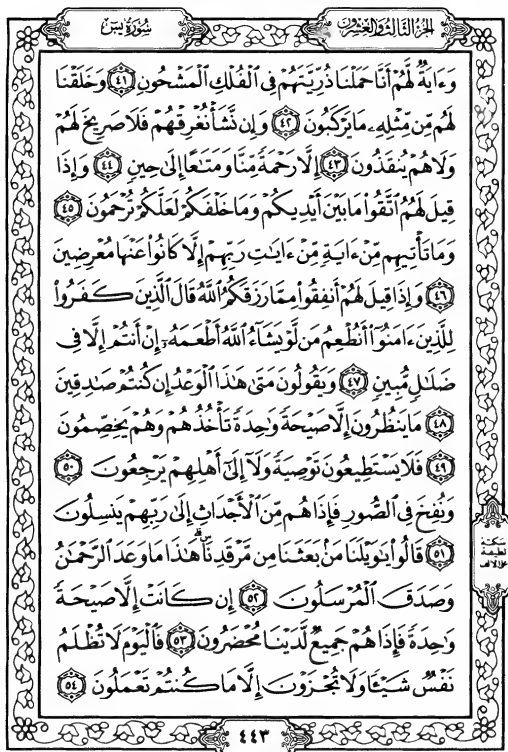 الجزء الثالث والعشرون
سورة يس
وَءَايَةٌ لَّهُمْ أَنَّا حَمَلْنَا ذُرِّيَّتَهُمْ فِي ٱلْفُلْكِ ٱلْمَشْحُونِ ٤١ وَخَلَقْنَا
لَهُم مِّن مِّثْلِهِۦ مَا يَرْكَبُونَ ٤٢ وَإِن نَّشَأْ نُغْرِقْهُمْ فَلَا صَرِيخَ لَهُمْ
وَلَا هُمْ يُنقَذُونَ ٤٣ إِلَّا رَحْمَةً مِّنَّا وَمَتَٰعًا إِلَىٰ حِينٍ ٤٤ وَإِذَا
قِيلَ لَهُمُ ٱتَّقُوا۟ مَا بَيْنَ أَيْدِيكُمْ وَمَا خَلْفَكُمْ لَعَلَّكُمْ تُرْحَمُونَ ٤٥
وَمَا تَأْتِيهِم مِّنْ ءَايَةٍ مِّنْ ءَايَٰتِ رَبِّهِمْ إِلَّا كَانُوا۟ عَنْهَا مُعْرِضِينَ
٤٦ وَإِذَا قِيلَ لَهُمْ أَنفِقُوا۟ مِمَّا رَزَقَكُمُ ٱللَّهُ قَالَ ٱلَّذِينَ كَفَرُوا۟
لِلَّذِينَ ءَامَنُوٓا۟ أَنُطْعِمُ مَن لَّوْ يَشَآءُ ٱللَّهُ أَطْعَمَهُۥٓ إِنْ أَنتُمْ إِلَّا فِي
ضَلَٰلٍ مُّبِينٍ ٤٧ وَيَقُولُونَ مَتَىٰ هَٰذَا ٱلْوَعْدُ إِن كُنتُمْ صَٰدِقِينَ
٤٨ مَا يَنظُرُونَ إِلَّا صَيْحَةً وَٰحِدَةً تَأْخُذُهُمْ وَهُمْ يَخِصِّمُونَ
٤٩ فَلَا يَسْتَطِيعُونَ تَوْصِيَةً وَلَآ إِلَىٰٓ أَهْلِهِمْ يَرْجِعُونَ ٥٠
وَنُفِخَ فِي ٱلصُّورِ فَإِذَا هُم مِّنَ ٱلْأَجْدَاثِ إِلَىٰ رَبِّهِمْ يَنسِلُونَ
٥١ قَالُوا۟ يَٰوَيْلَنَا مَنۢ بَعَثَنَا مِن مَّرْقَدِنَا ۜ ۗ هَٰذَا مَا وَعَدَ ٱلرَّحْمَٰنُ
وَصَدَقَ ٱلْمُرْسَلُونَ ٥٢ إِن كَانَتْ إِلَّا صَيْحَةً
وَٰحِدَةً فَإِذَا هُمْ جَمِيعٌ لَّدَيْنَا مُحْضَرُونَ ٥٣ فَٱلْيَوْمَ لَا تُظْلَمُ
نَفْسٌ شَيْـًٔا وَلَا تُجْزَوْنَ إِلَّا مَا كُنتُمْ تَعْمَلُونَ ٥٤
سكتة
لطيفة
على الألف
٤٤٣